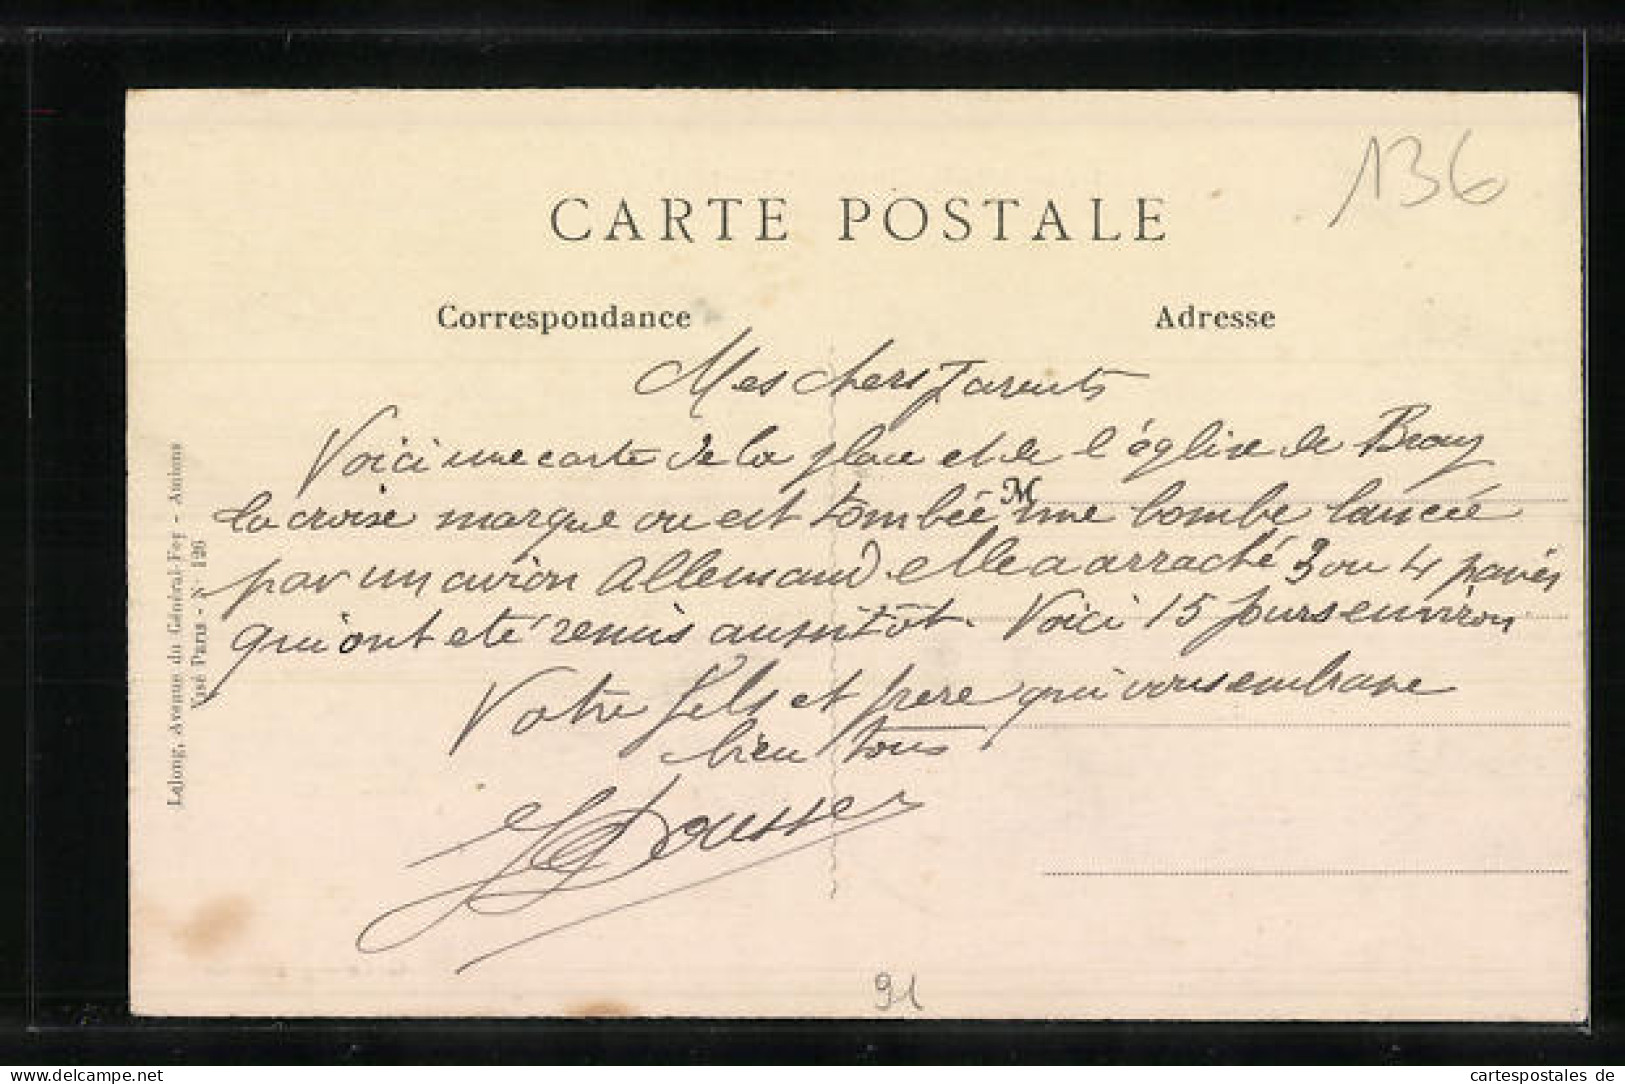 136
CARTE POSTALE
Correspondance
Adresse
Mes chers Parents
Voici une carte de la place et de l'église de Bray
M
la croise marque ou est tombée une bombe lancée
par un avion Allemand. elle a arraché 3 ou 4 pavés
qui ont eté remis aussitôt. Voici 15 jours environ
Votre fils et frere qui vous embrasse
bien tous
Lelong, Avenue du Général-Foy - Amiens
Visé Paris - N° 126
91
cartespostales de
delcampe.net